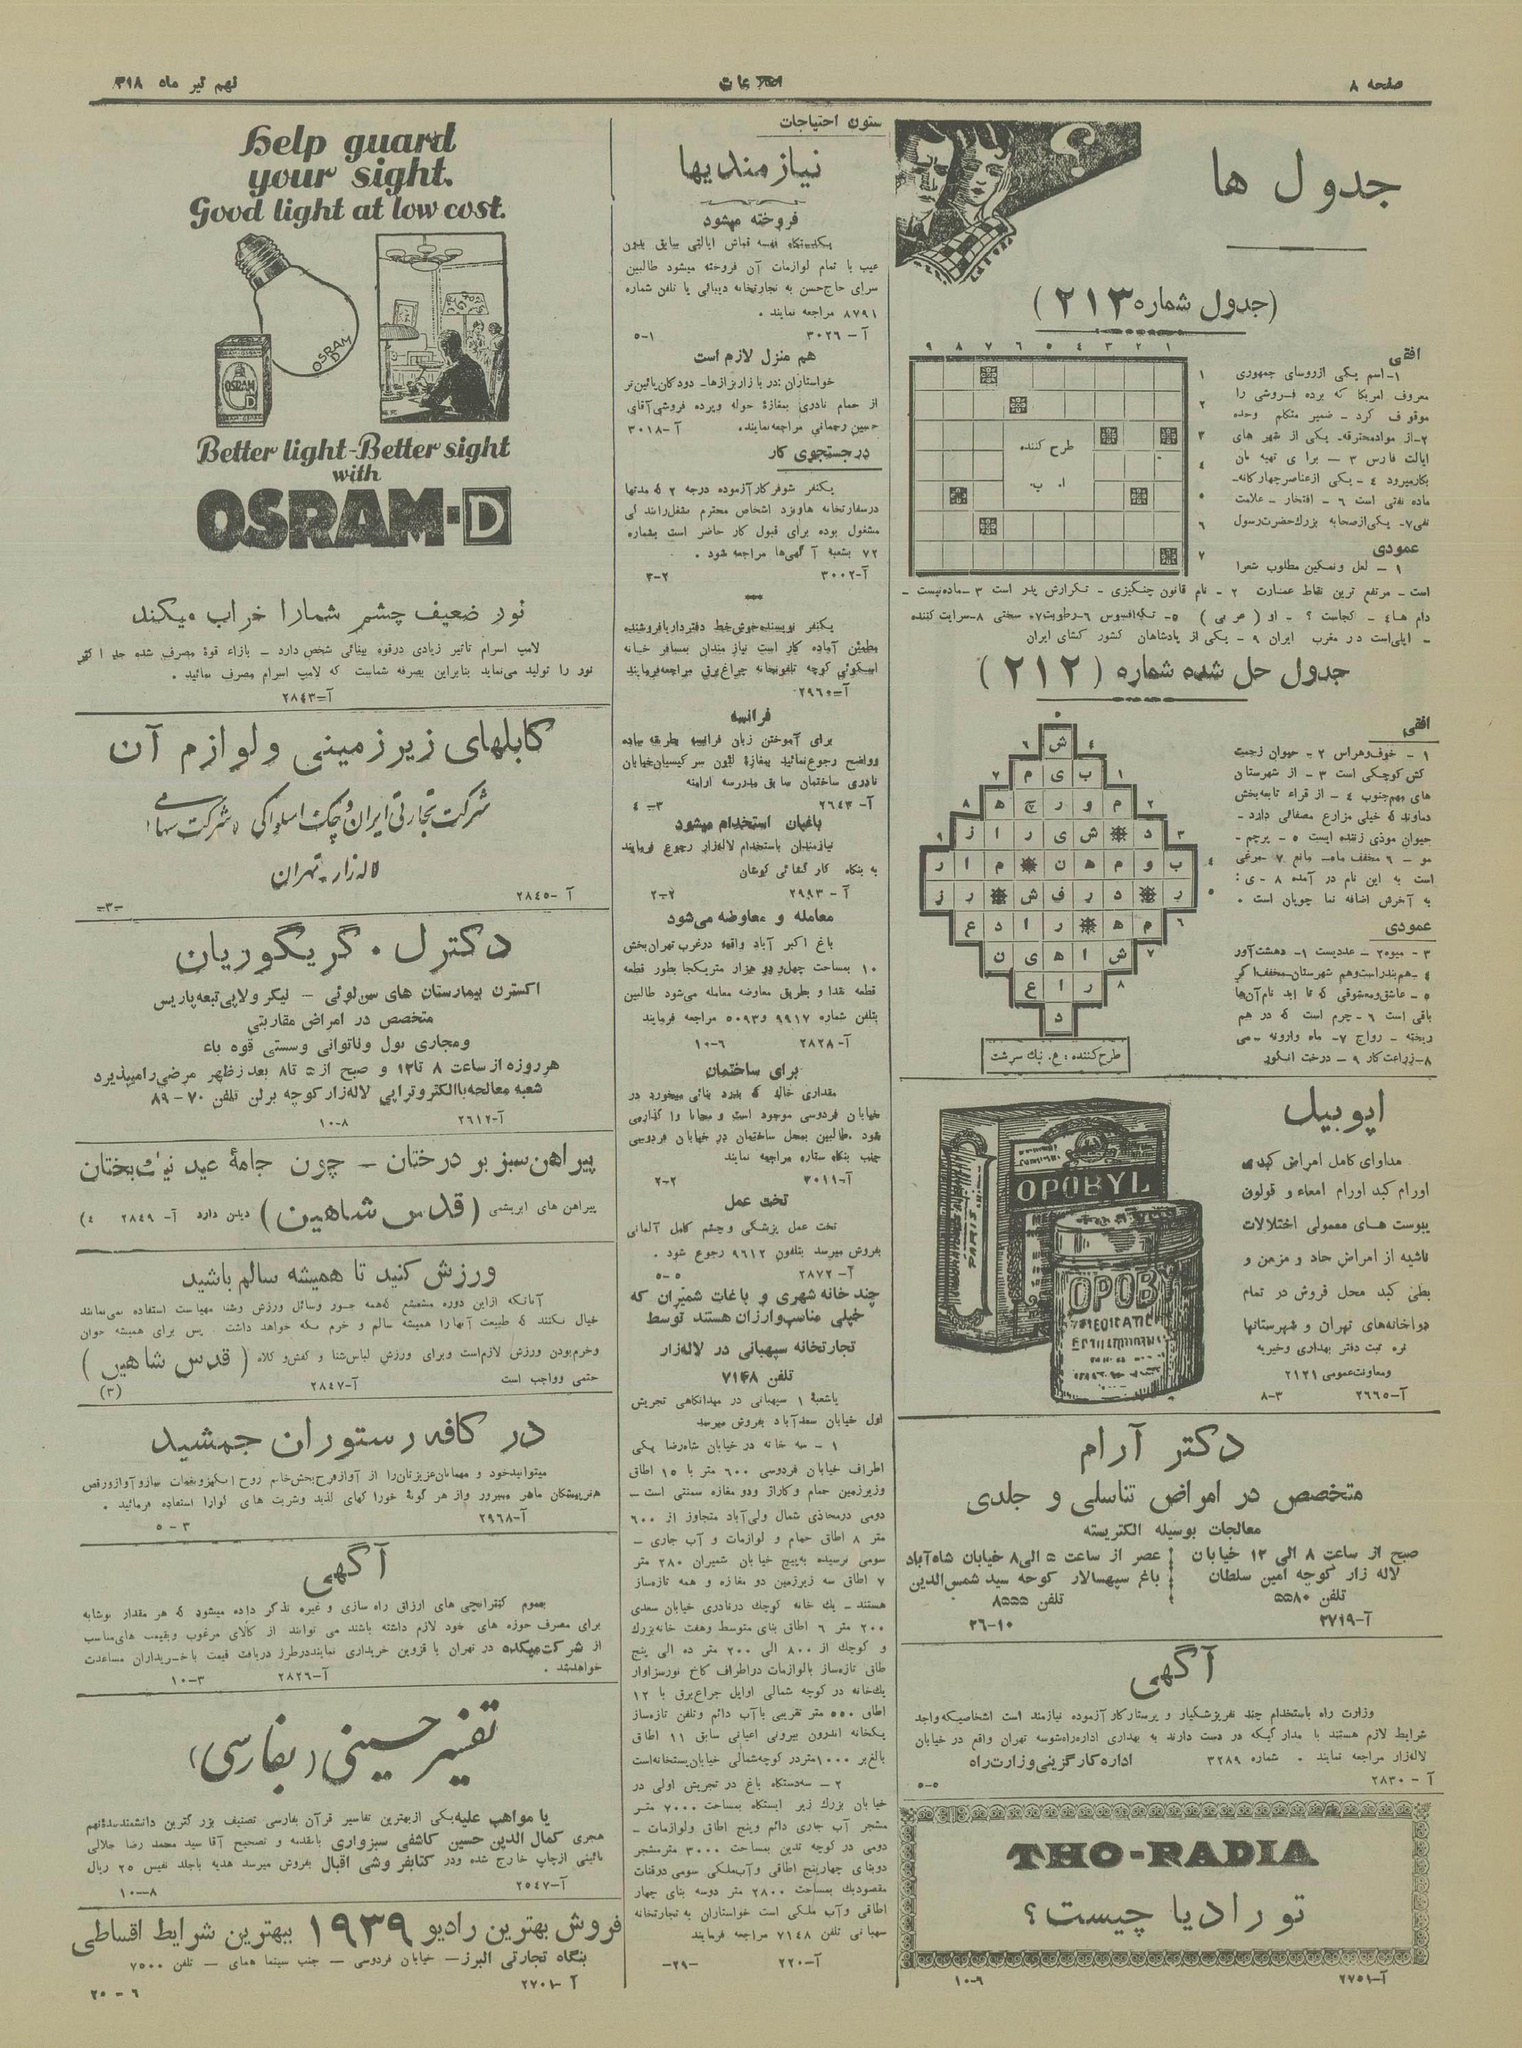 صفحه ۸
اطلاعات
نهم تیر ماه ۳۱۸
جدول ها
(جدول شماره ۲۱۳)
۹ ۸ ۷ ۶ ۵ ۴ ۳ ۲ ۱
۱
۲
۳
۴
۵
۶
۷
طرح کننده
ا. ب.
افقی
۱- اسم یکی از روسای جمهوری
معروف امریکا که برده فروشی را
موقوف کرد - ضمیر متکلم وحده
۲-از مواد محترقه- یکی از شهر های
ایالت فارس ۳ - برای تهیه نان
بکار میرود ۴ - یکی از عناصر چهارگانه-
ماده نفتی است ۶ - افتخار - علامت
نفی ۷- یکی از صحابه بزرگ حضرت رسول
عمودی
۱ - لعل و نمکین مطلوب شعرا
است - مرتفع ترین نقاط عمارت ۲ - نام قانون چنگیزی - تکرارش پدر است ۳ -ماده نیست -
دام ها ۴ - کجاست ؟ - او (عربی) ۵- تکه افسوس ۶-رطوبت ۷- سختی ۸-سرایت کننده
- ایلی است در مغرب ایران ۹ - یکی از پادشاهان کشور گشای ایران
جدول حل شده شماره (۲۱۲)
افقی
۱ - خوف و هراس ۲ - حیوان زحمت
کش کوچکی است ۳ - از شهرستان
های مهم جنوب ۴ - از قراء تابعه بخش
دماوند که خیلی مزارع مصفائی دارد -
حیوان موذی زننده ایست ۵ - پرچم -
مو - ۶ مخفف ماه- مانع ۷ -مرغی
است به این نام در آمده ۸ - ی :
به آخرش اضافه نما چوپان است .
عمودی
۳ - میوه ۲ - عددیست ۱- دهشت آور
۴ -هم بندر است و هم شهرستان-مخفف اگر
۵ - عاشق و معشوقی که تا ابد نام آن ها
باقی است ۶ - چرم است که در هم
ریخته - رواج ۷- ماه وارونه - می
۸-زراعت کار ۹ - درخت انگور
ش
م ی ب
ه چ ر و م
ز ا ر ی ش د
ر ا م ن ه م و ب
ز ر ش ف ر د ر
ع د ا ر ه م
ن ی ه ا ش
ع ا ر
د
طرح کننده : ع. نیك سرشت
اپوبیل
مداوای کامل امراض کبدی
اورام کبد اورام امعاء و قولون
یبوست های معمولی اختلالات
ناشیه از امراض حاد و مزمن و
بطی کبد محل فروش در تمام
دواخانه های تهران و شهرستانها
نمره ثبت دفتر بهداری و خیریه
و معاونت عمومی ۲۱۲۱
آ-۲۶۶۵ ۸-۳
OPOBYL
PARIS
OPOBY
MEDICATIE
دکتر آرام
متخصص در امراض تناسلی و جلدی
معالجات بوسیله الکتریسته
صبح از ساعت ۸ الی ۱۲ خیابان
لاله زار کوچه امین سلطان
تلفن ۵۵۸۰
عصر از ساعت ۵ الی ۸ خیابان شاه آباد
باغ سپهسالار کوچه سید شمس الدین
تلفن ۸۵۵۵
آ-۲۷۱۹ ۲۶-۱۰
آگهی
وزارت راه باستخدام چند نفر پزشکیار و پرستار کار آزموده نیازمند است اشخاصیکه واجد
شرایط لازم هستند با مدارکیکه در دست دارند به بهداری اداره راه شوسه تهران واقع در خیابان
لاله زار مراجعه نمایند . شماره ۳۲۸۹ اداره کارگزینی وزارت راه
آ - ۲۸۳۰ ۵-۵
THO-RADIA
تو رادیا چیست؟
آ-۲۷۵۱ ۱۰-۶
ستون احتیاجات
نیازمندیها
فروخته میشود
یکدستگاه قفسه قماش ایالتی سابق بدون
عیب با تمام لوازمات آن فروخته میشود طالبین
سرای حاج حسن به تجارتخانه دیبائی یا تلفن شماره
۸۷۹۱ مراجعه نمایند .
آ - ۳۰۲۶ ۵-۱
هم منزل لازم است
خواستاران :در بازار بزازها- دو دکان پائین تر
از حمام نادری بمغازه حوله و پرده فروشی آقای
حسین رحمانی مراجعه نمایند. آ-۳۰۱۸
در جستجوی کار
یکنفر شوفر کار آزموده درجه ۲ که مدتها
در سفارتخانه ها و نزد اشخاص محترم بشغل رانندگی
مشغول بوده برای قبول کار حاضر است بشماره
۷۲ بشعبه آگهی ها مراجعه شود .
آ-۳۰۰۲ ۳-۲
یکنفر نویسنده خوش خط دفتردار یا فروشنده
مطمئن آماده کار است نیازمندان بمسافرخانه
اسکوئی کوچه تلفونخانه چراغ برق مراجعه فرمایند
آ-۲۹۶۰
فرانسه
برای آموختن زبان فرانسه بطریقه ساده
و واضح رجوع نمائید بمغازه لئون سرکیسیان خیابان
نادری ساختمان سابق مدرسه ارامنه
آ- ۲۶۴۳ ۴ -۳
باغبان استخدام میشود
نیازمندان باستخدام لاله زار رجوع فرمایند
به بنگاه کار گشائی کوشان
آ - ۲۹۹۳ ۲-۲
معامله و معاوضه می شود
باغ اکبر آباد واقعه در غرب تهران بخش
۱۰ بمساحت چهل و دو هزار متر یکجا بطور قطعه
قطعه نقدا و بطریق معاوضه معامله می شود طالبین
بتلفن شماره ۹۹۱۷ و ۵۰۹۳ مراجعه فرمایند
آ- ۲۸۲۸ ۱۰-۶
برای ساختمان
مقداری خاك که بدرد بنائی میخورد در
خیابان فردوسی موجود است و مجانا واگذار می
شود .طالبین بمحل ساختمان در خیابان فردوسی
جنب بنگاه ستاره مراجعه نمایند
آ-۳۰۱۱ ۲-۲
تخت عمل
تخت عمل پزشکی و چشم کامل آلمانی
بفروش میرسد بتلفون ۹۶۱۲ رجوع شود .
آ- ۲۸۷۲ ۵-۵
چند خانه شهری و باغات شمیران که
خیلی مناسب و ارزان هستند توسط
تجارتخانه سپهبانی در لاله زار
تلفن ۷۱۴۸
یا شعبه ۱ سپهبانی در میدانگاهی تجریش
اول خیابان سعد آباد بفروش میرسد
۱ - سه خانه در خیابان شاه رضا یکی
اطراف خیابان فردوسی ۶۰۰ متر با ۱۵ اطاق
و زیر زمین حمام و گاراژ و دو مغازه سمنتی است -
دومی در محاذی شمال ولی آباد متجاوز از ۶۰۰
متر ۸ اطاق حمام و لوازمات و آب جاری -
سومی نرسیده به پیچ خیابان شمیران ۲۸۰ متر
۷ اطاق سه زیرزمین دو مغازه و همه تازه ساز
هستند - یك خانه کوچك در نادری خیابان سعدی
۲۰۰ متر ۶ اطاق بنای متوسط و هفت خانه بزرگ
و کوچك از ۸۰۰ الی ۲۰۰ متر ده الی پنج
طاقی تازه ساز با لوازمات در اطراف کاخ نور سزاوار
یك خانه در کوچه شمالی اوایل چراغ برق با ۱۲
اطاق ۵۵۰ متر تقریبی با آب دائم و تلفن تازه ساز
یکخانه اندرون بیرونی اعیانی سابق ۱۱ اطاق
بالغ بر ۱۰۰۰ متر در کوچه شمالی خیابان پستخانه است
۲ - سه دستگاه باغ در تجریش اولی در
خیابان بزرگ زیر ایستگاه بمساحت ۷۰۰۰ متر
مشجر آب جاری دائم و پنج اطاق و لوازمات -
دومی در کوچه تدین بمساحت ۳۰۰۰ متر مشجر
دو بنای چهار پنج اطاقی و آب ملکی سومی در قنات
مقصود بك بمساحت ۲۸۰۰ متر دوسه بنای چهار
اطاقی و آب ملکی است خواستاران به تجارتخانه
سپهبانی تلفن ۷۱۴۸ مراجعه فرمایند
آ-۲۲۰ -۲۹-
Help guard
your sight.
Good light at low cost.
OSRAM
D
OSRAM
D
Better light-Better sight
with
OSRAM-D
نور ضعیف چشم شما را خراب میکند
لامپ اسرام تاثیر زیادی در قوه بینائی شخص دارد - بازاء قوه مصرف شده حد اکثر
نور را تولید می نماید بنابراین بصرفه شماست که لامپ اسرام مصرف نمائید .
آ-۲۸۴۳
کابلهای زیرزمینی و لوازم آن
شرکت تجارتی ایران و چک اسلواکی (شرکت سهامی)
لاله زار- تهران
آ -۲۸۴۵ -۳-
دکتر ل . گریگوریان
اکسترن بیمارستان های سن لوئی - لیکر ولاپی تیه پاریس
متخصص در امراض مقاربتی
و مجاری بول و ناتوانی و سستی قوه باء
هر روزه از ساعت ۸ تا ۱۲ و صبح از ۵ تا ۸ بعد از ظهر مرضی را میپذیرد
شعبه معالجه با الکتروتراپی لاله زار کوچه برلن تلفن ۷۰-۸۹
آ-۲۶۱۲ ۱۰-۸
پیراهن سبز بر درختان - چون جامهٔ عید نیك بختان
پیراهن های ابریشمی (قدس شاهین) دیدن دارد آ- ۲۸۴۹ (۴
ورزش کنید تا همیشه سالم باشید
آنانکه از این دوره مشعشع که همه جور وسائل ورزش و شنا مهیاست استفاده نمی نمایند
خیال نکنند که طبیعت آنها را همیشه سالم و خرم نگه خواهد داشت . پس برای همیشه جوان
و خرم بودن ورزش لازم است و برای ورزش لباس شنا و کفش و کلاه (قدس شاهین)
حتمی و واجب است آ-۲۸۴۷ (۳)
در کافه رستوران جمشید
میتوانید خود و مهمانان عزیزتان را از آواز فرح بخش خانم روح انگیز و نغمات ساز و آواز و رقص
هنرپیشگان ماهر مسرور و از هر گونه خوراکهای لذیذ و شربت های گوارا استفاده فرمائید .
آ-۲۹۶۸ ۵ - ۳
آگهی
بعموم کنتراتچی های ارزاق راه سازی و غیره تذکر داده میشود که هر مقدار نوشابه
برای مصرف حوزه های خود لازم داشته باشند می توانند از کالای مرغوب و بقیمت های مناسب
از شرکت میکده در تهران یا قزوین خریداری نمایند در طرز دریافت قیمت با خریداران مساعدت
خواهد شد . آ-۲۸۲۶ ۱۰-۳
تفسیر حسینی (بفارسی)
یا مواهب علیه یکی از بهترین تفاسیر قرآن بفارسی تصنیف بزرگترین دانشمند سده نهم
هجری کمال الدین حسین کاشفی سبزواری با مقدمه و تصحیح آقا سید محمد رضا جلالی
نائینی از چاپ خارج شده و در کتابفروشی اقبال بفروش میرسد هدیه با جلد نفیس ۲۵ ریال
آ-۲۵۴۷ ۱۰-۸
فروش بهترین رادیو ۱۹۳۹ ببهترین شرایط اقساطی
بنگاه تجارتی البرز- خیابان فردوسی - جنب سینما همای - تلفن ۷۵۰۰
آ - ۲۷۰۱ ۲۰ - ۶